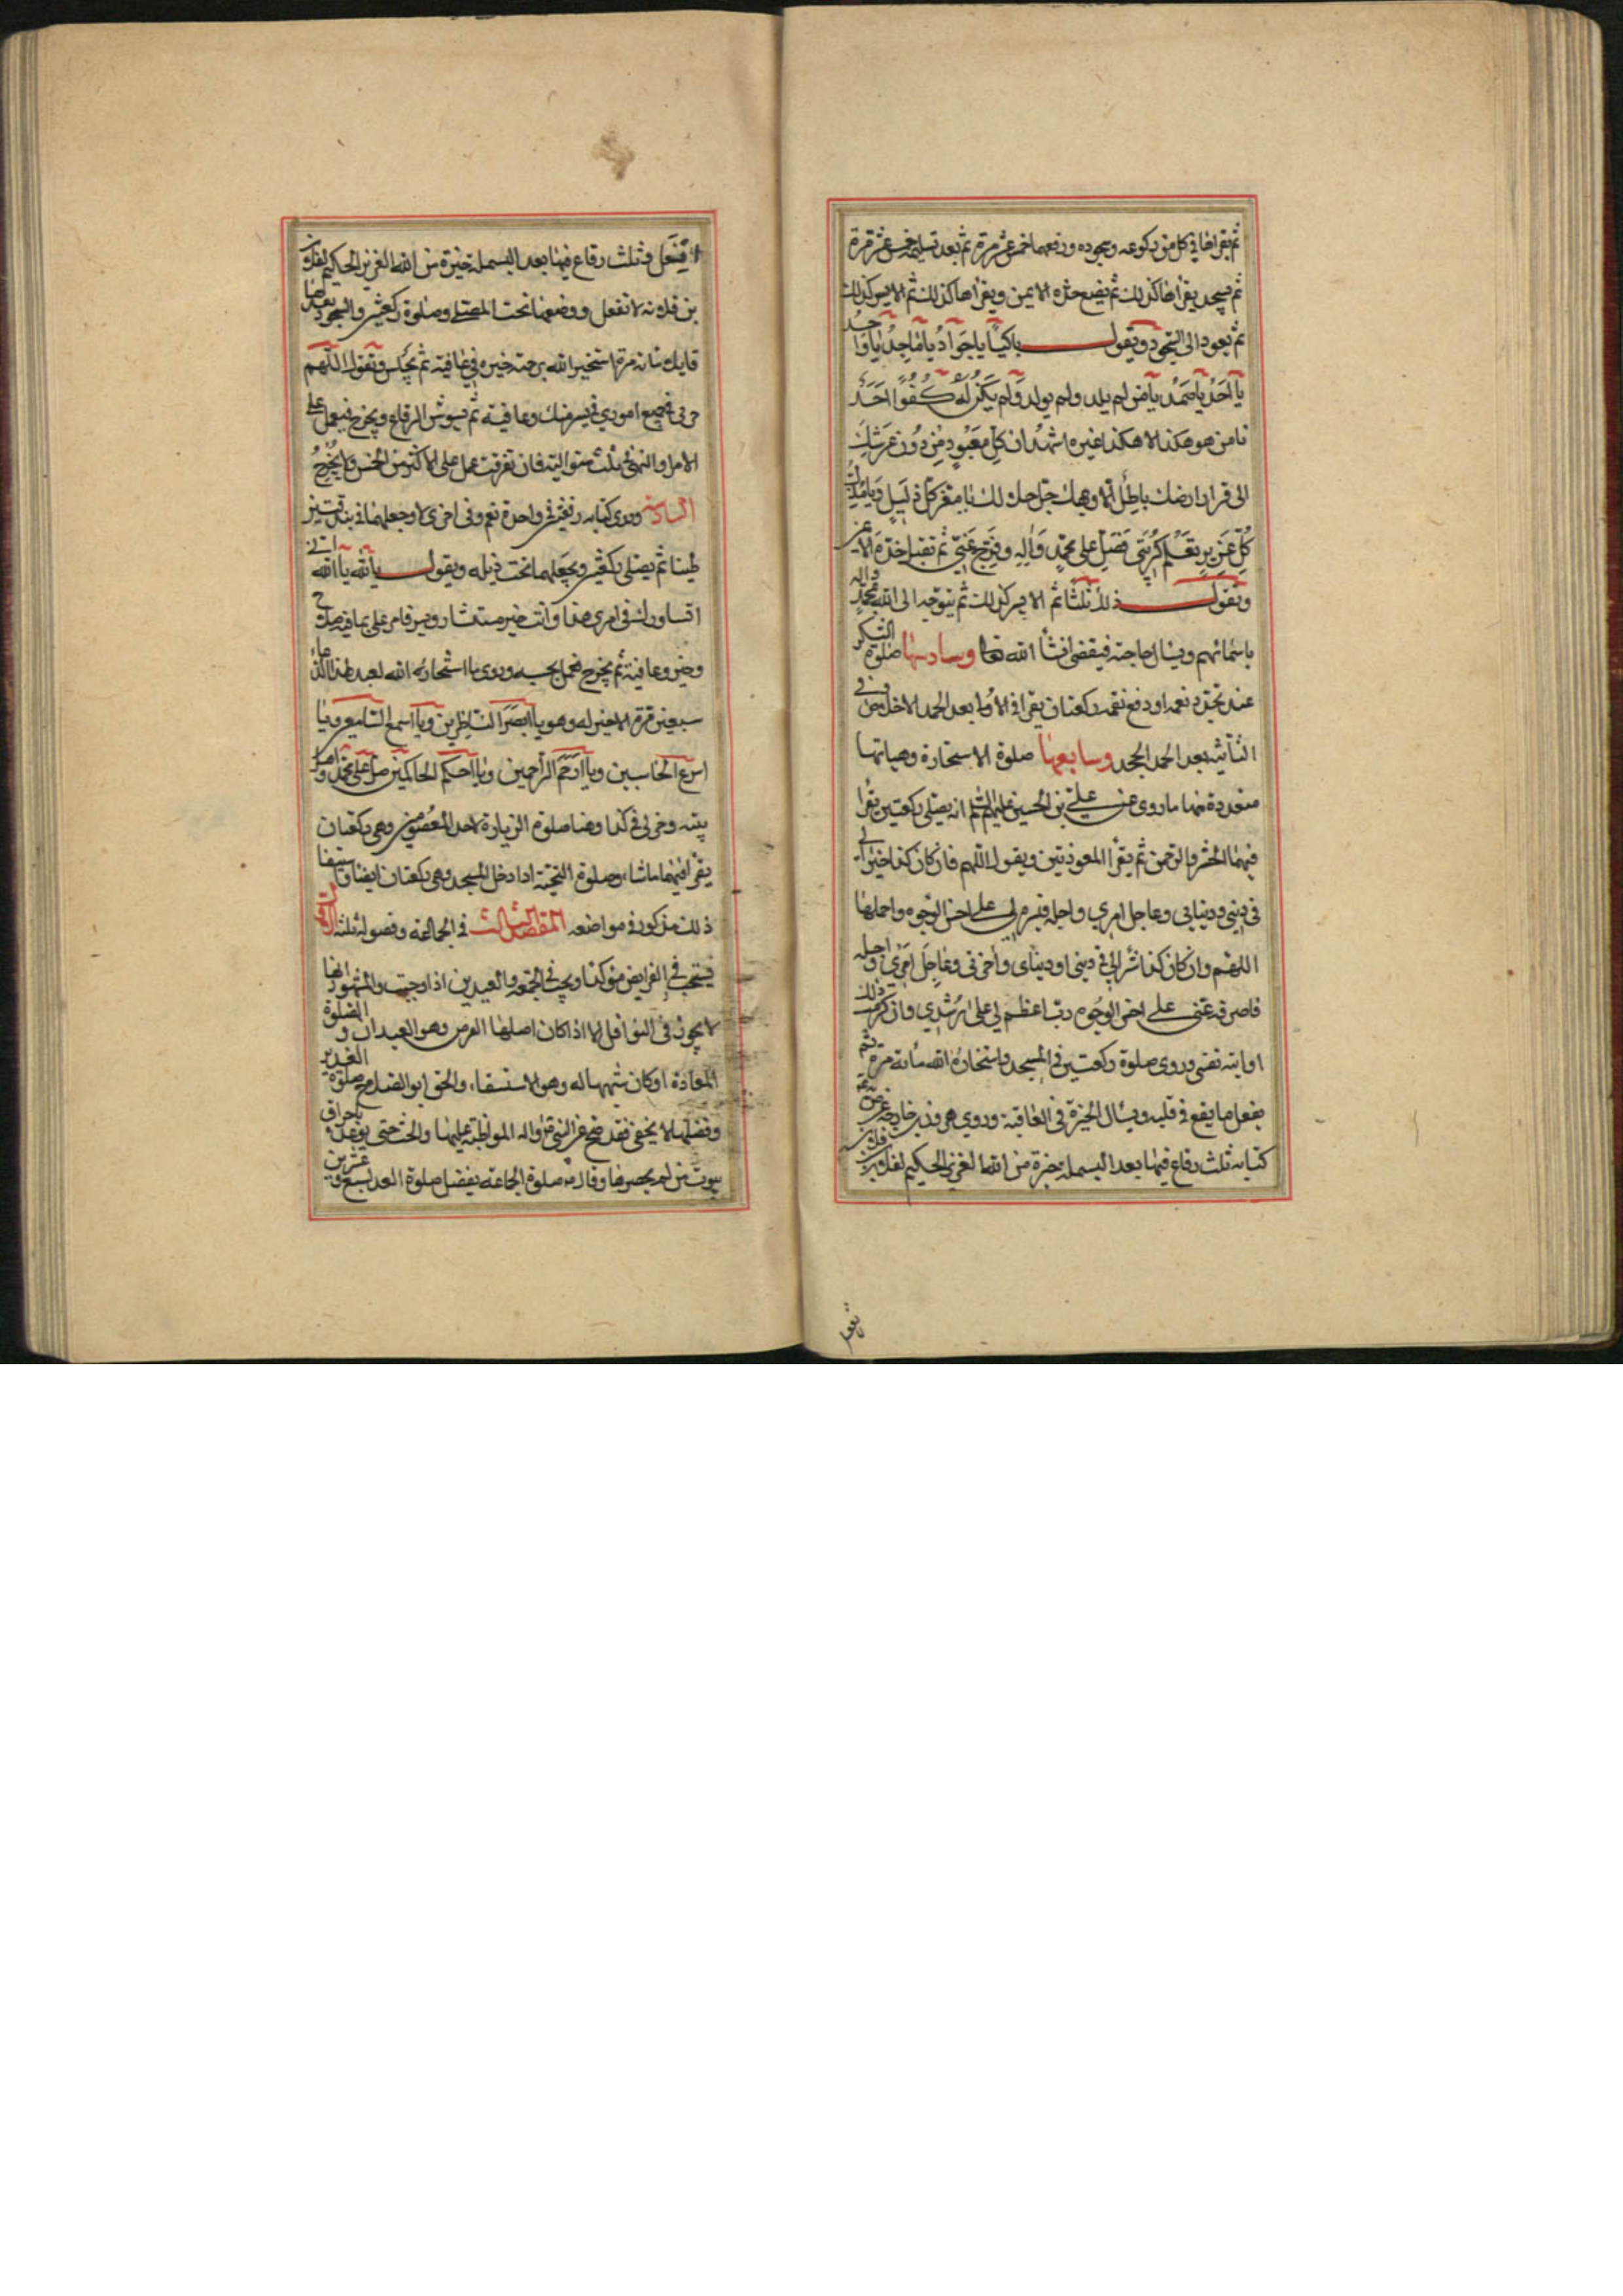 ثم يقراها في كل من ركوعه وسجوده ورفعهما خمس عشر مرة ثم بعد تسليمه خمس عشر مرة
ثم يسجد يقراها كذلك ثم يضع خده الايمن ويقراها كذلك ثم الايسر كذلك
ثم يعود الى السجود ويقول يا جواد يا ماجد يا واحد
يا احد يا صمد يا من لم يلد ولم يولد ولم يكن له كفوا احد
يا من هو هكذا لا هكذا غيره اشهد ان كل معبود من دون عرشك
الى قرار ارضك باطل الا وجهك جل جلالك يا معز كل ذليل ويا مذل
كل عزيز تعلم كربتي فصل على محمد واله وفرج عني ثم تقلب خدك الايمن
وتقول ذلك ثلثا ثم الايسر كذلك ثم يتوجه الى الله بمحمد واله
باسمائهم ويسال حاجته فيقضى انشأ الله تعا وسادسها صلوة الشكر
عند تجدد نعمة او دفع نقمة ركعتان يقرا في الاولى بعد الحمد الاخلاص وفي
الثانية بعد الحمد الجحد وسابعها صلوة الاستخارة وهياتها
متعددة فمنها ما روى عن علي بن الحسين عليهما السلم انه يصلي ركعتين يقرا
فيهما الحشر والرحمن ثم يقرأ المعوذتين ويقول اللهم فان كان كذا خيرا لي
في ديني ودنياي وعاجل امري واجله فيسره لي على احسن الوجوه واجملها
اللهم وان كان كذا شرا لي في ديني او دنياي واخرتي وعاجل امري واجله
فاصرفه عني على احسن الوجوه رب اعظم لي على رشدي وان كرهت ذلك
او ابته نفسي وروى صلوة ركعتين في المسجد واستخارة الله مائة مرة ثم
يفعل ما يقع في قلبه ويسأل الخيرة في العافية وروى هرون بن خارجة عن
كتابة ثلث رقاع فيها بعد البسملة خيرة من الله العزيز الحكيم لفلان بن فلان
تفعل
افعل وثلث رقاع فيها بعد البسملة خيرة من الله العزيز الحكيم لفلان
بن فلانة لا تفعل ووضعها تحت المصلى وصلوة ركعتين والسجود بعدها
قايلا مائة مرة استخير الله برحمته خيرة في عافية ثم يجلس ويقول اللهم
خر لي في جميع اموري في يسر منك وعافية ثم يشوش الرقاع ويخرج فيعمل على
الامر والنهي بثلث متوالية فان تفرقت عمل على الاكثر من الخمس ولا يخرج
السادسة وروى كتابة رقعتين في واحدة نعم وفي اخرى لا وجعلهما في بندقتين
طينا ثم يصلي ركعتين ويجعلهما تحت ذيله ويقول يا الله يا الله اني
اشاورك في امري هذا وانت خير مستشار ومشير فاشر علي بما فيه صلاح
وخير وعافية ثم يخرج فيعمل بحسبه وروى ما استخار الله عبد بهذا الدعاء
سبعين مرة الا خير له وهو يا ابصر الناظرين ويا اسمع السامعين ويا
اسرع الحاسبين ويا ارحم الراحمين ويا احكم الحاكمين صل على محمد واهل
بيته وخر لي في كذا ومنها صلوة الزيارة لاحد المعصومين وهي ركعتان
يقرا فيهما ما شاء وصلوة التحية اذا دخل المسجد وهي ركعتان ايضا
ذلك مذكور في مواضعه المقصد الثالث في الجماعة وفصوله ثلثة
فيستحب في الفرايض مؤكدا ويجب في الجمعة والعيدين اذا وجبت والمشهور انها
لا يجوز في النوافل الا اذا كان اصلها الفرض وهو العيدان والصلوة
المعادة او كان شبيها له وهو الاستسقاء والحق ابو الصلاح صلوة الغدير
وفضلها لا يخفى فقد صح عن النبي ص واله المواظبة عليها والحث حتى توعد باحراق
بيوت من لم يحضرها وقال ص صلوة الجماعة تفضل صلوة الفذ بسبع وعشرين